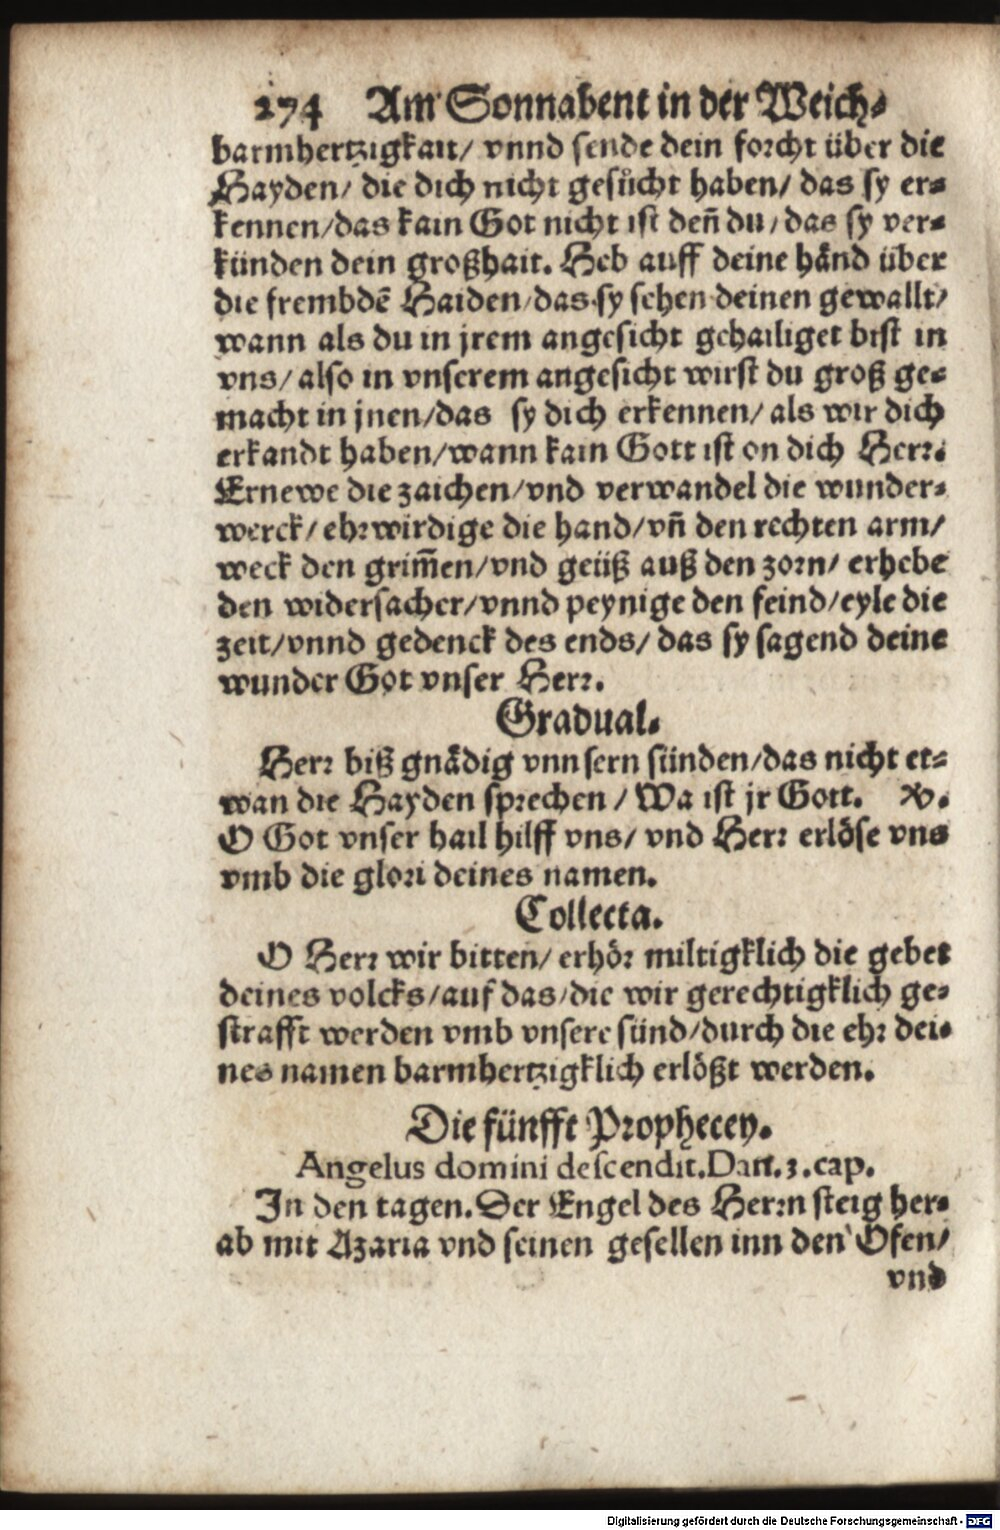 274 Am Sonnabent in der Weich⸗
barmhertzigkait/ vnnd sende dein forcht über die
Hayden/ die dich nicht gesůcht haben/ das sy er⸗
kennen/das kain Got nicht ist den̄ du/das sy ver⸗
künden dein großhait. Heb auff deine hånd über
die frembdē Haiden/das sy sehen deinen gewallt/
wann als du in jrem angesicht gehailiget bist in
vns/also in vnserem angesicht wirst du groß ge⸗
macht in jnen/das sy dich erkennen/ als wir dich
erkandt haben/wann kain Gott ist on dich Herr.
Ernewe die zaichen/vnd verwandel die wunder⸗
werck/ ehrwirdige die hand/vn̄ den rechten arm/
weck den grim̄en/vnd geüß auß den zorn/ erhebe
den widersacher/vnnd peynige den feind/eyle die
zeit/vnnd gedenck des ends/ das sy sagend deine
wunder Got vnser Herr.
Gradual.
Herr biß gnådig vnnsern sünden/das nicht et⸗
wan die Hayden sprechen/Wa ist jr Gott. ℣.
O Got vnser hail hilff vns/ vnd Herr erlöse vns
vmb die glori deines namen.
Collecta.
O Herr wir bitten/ erhör miltigklich die gebet
deines volcks/auf das/die wir gerechtigklich ge⸗
strafft werden vmb vnsere sünd/durch die ehr dei⸗
nes namen barmhertzigklich erlößt werden.
Die fünfft Prophecey.
Angelus domini descendit.Dan.3.cap.
In den tagen.Der Engel des Herrn steig her⸗
ab mit Azaria vnd seinen gesellen inn den Ofen/
vnd
Digitalisierung gefördert durch die Deutsche Forschungsgemeinschaft - DFG